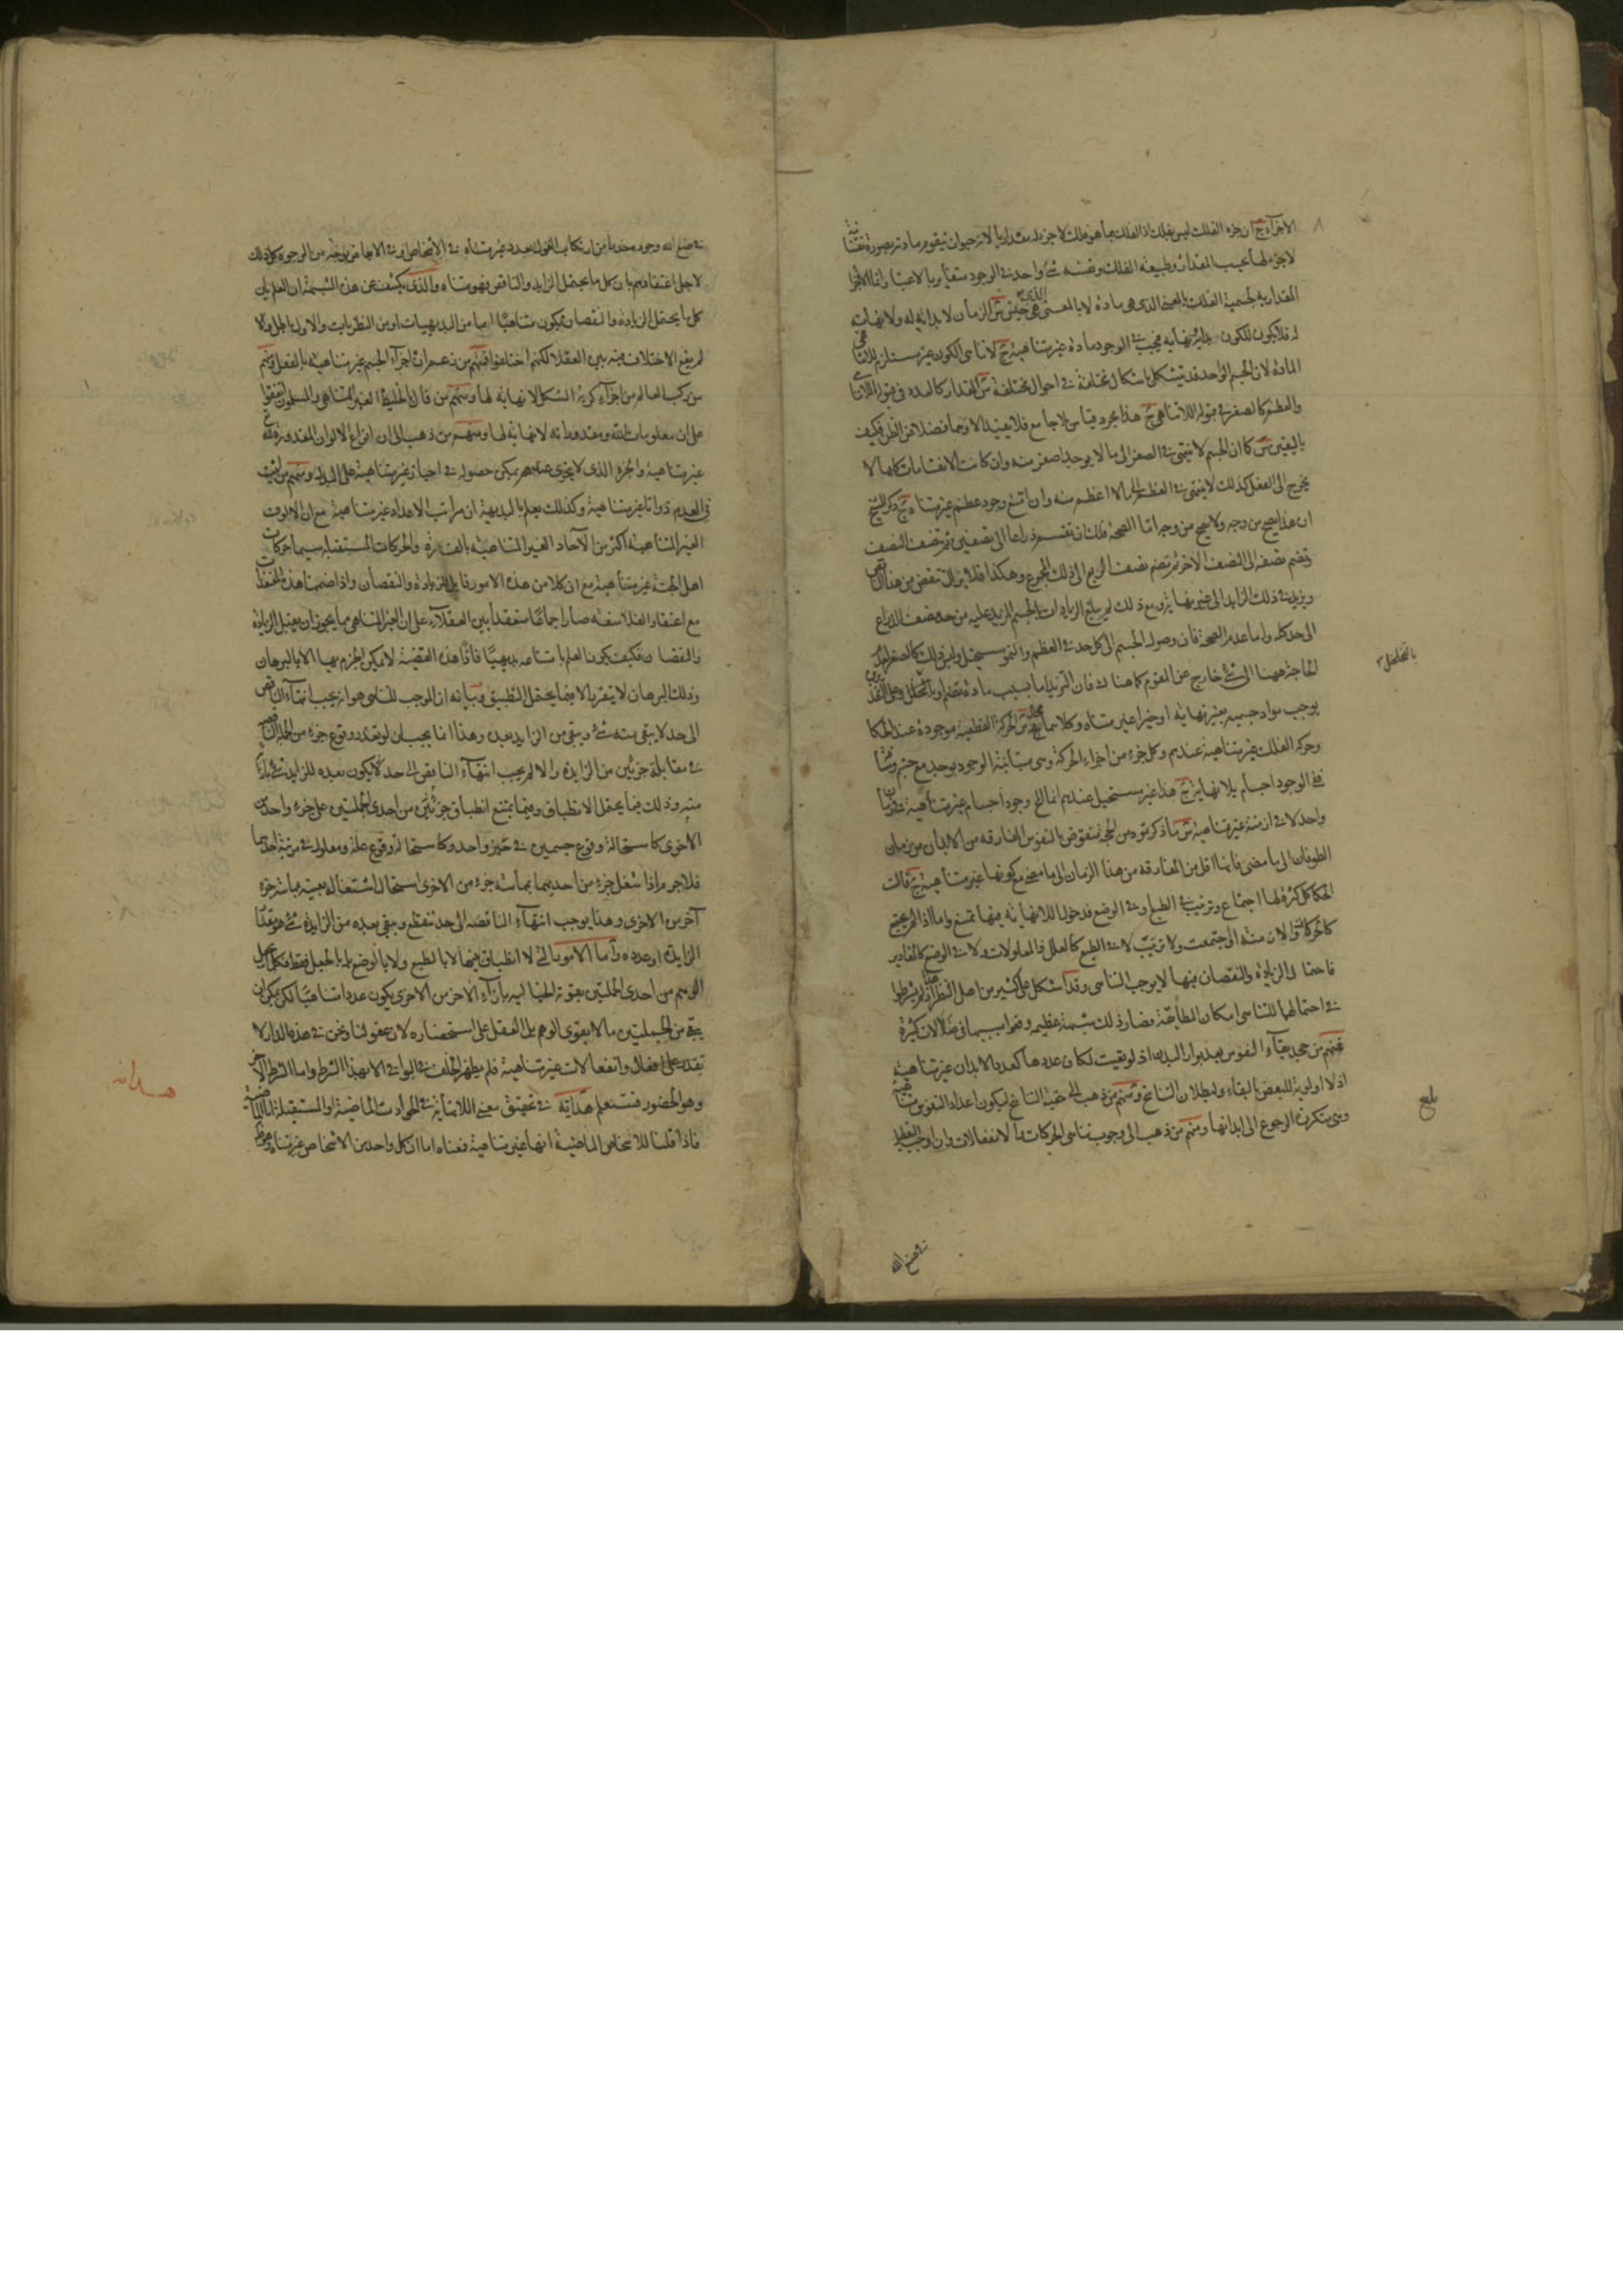 الاجزاء ج ان جزء الفلك ليس بفلك اذ الفلك بما هو فلك لا جزء له مقداريا لانه حيوان تيقوم مادته بصورة نفسانية
لا جزء لها بحسب المقدار وطبيعة الفلك ونفسه شئ واحد في الوجود متغاير بالاعتبار وانما الاجزا
المقدارية لجسمية الفلك بالمعنى الذي هي مادة لا بالمعنى الذي هي جنس ش الزمان لا بداية له ولا نهاية
له فلا يكون للكون نهاية فيجب في الوجود مادة غير متناهية ج لا تناهى الكون غير مستلزم للاتناهي
المادة لان الجسم الواحد قد يتشكل باشكال مختلفة في احوال مختلفة ش المقدار كالعدد في قبول اللاتناهي
والعظم كالصغر في قبول اللاتناهي ج هذا مجرد قياس بلا جامع فلا يفيد الا وهما فضلا من الظن فكيف
باليقين ش كما ان الجسم لا ينتهى في الصغر الى ما لا يوجد اصغر منه وان كانت الانقسامات كلها لا
يخرج الى الفعل كذلك لا ينتهى في العظم الى ما لا اعظم منه وان امتنع وجود عظم غير متناه ج ذكر الشيخ
ان هذا يصح من وجه ولا يصح من وجه اما الصحة فلك ان تقسم ذراعا الى نصفين ثم تنصف النصف
وتضم نصفه الى النصف الاخر ثم تضم نصف الربع الى ذلك المجموع وهكذا فلا يزال تنقص من هذا الناقص
ويزيد في ذلك الزايد الى غير نهاية ومع ذلك لم يبلغ الزيادات الجسم المزيد عليه من حد نصف الذراع
الى حد كله واما عدم الصحة فان وصول الجسم الى كل حد في العظم والنمو مستحيل وليس ذلك كالصغر
لحاجة ههنا الى شئ خارج عن المقوم كما هنالك فان التزيد اما بسبب مادة تنضم او بالتخلخل وعلى التقديرين
بالتخلخل
يوجب مواد جسمية بغير نهاية او حيزا غير متناه وكلاهما محال ش الحركة القطعية موجودة عند الحكما
وحركة الفلك غير متناهية عندهم وكل جزء من اجزاء الحركة وهي متباينة الوجود يوجد مع جسم
ففي الوجود اجسام بلا نهاية ج هذا غير مستحيل عندهم انما المحال وجود اجسام غير متناهية في زمان
واحد لا في ازمنة غير متناهية ش ما ذكرتموه من الحجة منقوض بالنفوس المفارقة من الابدان من زمان
الطوفان الى ما مضى فانها اقل من المفارقة من هذا الزمان الى ما مضى مع كونها غير متناهية ج قالت
الحكما كل كثرة لها اجتماع وترتيب في الطبع وفي الوضع فدخول اللانهاية فيها ممتنع واما اذا لم يجتمع
كالحركة او لان منه الى جتمعت ولا ترتيب لا في الطبع كالعلل والمعلولات ولا في الوضع كالمقادير
فاحتمال الزيادة والنقصان فيها لا يوجب التناهى وقد اشكل على كثير من اهل النظر اذ لم يشرطوا
في احتمالها للتناهى امكان المطابقة فصار ذلك شبهة عظيمة وقعوا بسببها في ضلالات كثيرة
فمنهم من جحد بقاء النفوس بعد بوار البدن اذ لو بقيت لكان عددها كعدد الابدان غير متناهية
اذ لا اولوية للبعض بالبقاء ولبطلان التناسخ ومنهم من ذهب الى حقية التناسخ ليكون اعداد النفوس متناهية
ومنى بتكرر الرجوع الى ابدانها ومنهم من ذهب الى وجوب تناهى الحركات والانفعالات وان اوجب التعطيل
بلغ
في صنع الله
في صنع الله وجوده محذورا من ارتكاب القول بعدد غير متناه في الاشخاص او في الابعاض بوجه من الوجوه كل ذلك
لاجل اعتقادهم بان كل ما يحتمل الزايد والناقص فهو متناه والذي يكشف عن هذه الشبهة ان العلم بان
كل ما يحتمل الزيادة والنقصان يكون متناهيا اما من البديهيات او من النظريات والاول باطل والا
لم يقع الاختلاف فيه بين العقلا لكنهم اختلفوا فمنهم من زعم ان اجزاء الجسم غير متناهية بالفعل ومنهم
من ركب العالم من اجزاء كرية الشكل لا نهاية لها ومنهم من قال بالخليط الغير المتناهى والمسلمون اتفقوا
على ان معلومات الله ومقدوراته لا نهاية لها ومنهم من ذهب الى ان انواع الالوان المقدورة لله
غير متناهية والجزء الذي لا يتجزى عندهم يمكن حصوله في احياز غير متناهية على البدل ومنهم من اثبت
في العدم ذواتا غير متناهية وكذلك يعلم بالبديهة ان مراتب الاعداد غير متناهية مع ان الالوف
الغير المتناهية اكثر من الآحاد الغير المتناهية والحركات المستقبلة سيما حركات
اهل الجنة غير متناهية مع ان كلا من هذه الامور قابل للزيادة والنقصان واذا ضممنا هذه
مع اعتقاد الفلاسفة صار اجماعا منعقدا بين العقلاء على ان الغير المتناهى مما يجوز ان يقبل الزيادة
والنقصان فكيف يكون العلم بامتناعه بديهيا فاذا هذه القضية لا يمكن الجزم بها الا بالبرهان
وذلك البرهان لا يتقرر الا فيما يحتمل التطبيق وبيانه ان الموجب للتناهى هو انه يجب انتهاء الناقص
الى حد لا يبقى منه شئ ويبقى من الزايد بعده وهذا انما يجب ان لو تعذر وقوع جزء من الجملة الناقصة
في مقابلة جزئين من الزايدة والا لم يجب انتهاء الناقص الى حد لا يكون بعده للزايد شئ بازاء
منه وذلك فيما يحتمل الانطباق وفيما يمتنع انطباق جزئين من احدى الجملتين على جزء واحد من
الاخرى كاستحالة وقوع جسمين في حيز واحد وكاستحالة وقوع علة ومعلول في مرتبة احدهما
فلا جرم اذا شغل جزء من احديهما بمماسة جزء من الاخرى استحال اشتغاله بعينه بمماسة جزء
آخر من الاخرى وهذا يوجب انتهاء الناقصة الى حد تنقطع ويبقى بعده من الزايدة شئ هو مقدار
الزايدة او عدده واما الامور التي لا انطباق فيها لا بالطبع ولا بالوضع بل بالجعل فقط فكل جعل
الوهم من احدى الجملتين بقوته الخيالية بازاء الآخر من الاخرى يكون عددا متناهيا لكن يمكن ان
يبقى من الجملتين ما لا يقوى الوهم بل العقل على استحضاره لان عقولنا ونحن في هذه الدار لا
تقدر على افعال وانفعالات غير متناهية فلم يظهر الخلف في البواقى الا بهذا الشرط واما الشرط الآخر
وهو الحضور فستعلم هداية في تحقيق معنى اللانهاية في الحوادث الماضية او المستقبلة
هداية
فاذا قلنا للاشخاص الماضية انها غير متناهية فمعناه اما ان كل واحد من الاشخاص غير متناه